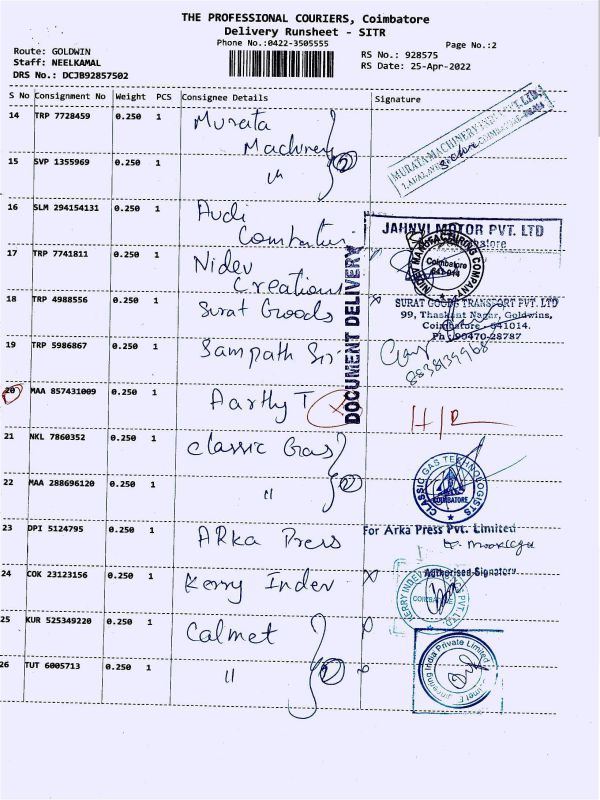 THE PROFESSIONAL COURIERS, Coimbatore
Delivery Runsheet - SITR
Phone No.:0422-3505555
Page No.:2
Route: GOLDWIN
RS No.: 928575
Staff: NEELKAMAL
RS Date: 25-Apr-2022
DRS No.: DCJB92857502
S No Consignment No Weight PCS Consignee Details Signature
14 TRP 7728459 0.250 1 Murata Machinery
15 SVP 1355969 0.250 1 "
2
16 SLM 294154131 0.250 1 Audi
JAHNVI MOTOR PVT. LTD
17 TRP 7741811 0.250 1 Nidev Creations
NIDEV MANUFACTURING COMPANY
Coimbatore
641 014
18 TRP 4988556 0.250 1 Surat Goods
SURAT GOODS TRANSPORT PVT. LTD
99, Thaskant Nagar, Goldwins,
Coimbatore - 641014.
Ph : 90470-28787
DOCUMENT DELIVERY
19 TRP 5986867 0.250 1 Sampath Sri
20 MAA 857431009 0.250 1 Aarthy T
21 NKL 7860352 0.250 1 Classic Gas
22 MAA 288696120 0.250 1 "
2
CLASSIC GAS TECHNOLOGISTS
COIMBATORE
23 DPI 5124795 0.250 1 ARka Press
For Arka Press Pvt. Limited
Authorised Signatory
24 COK 23123156 0.250 1 Kerry Indev
KERRY INDEV
PVT LTD
25 KUR 525349220 0.250 1 Calmet
26 TUT 6005713 0.250 1 "
2
India Private Limited